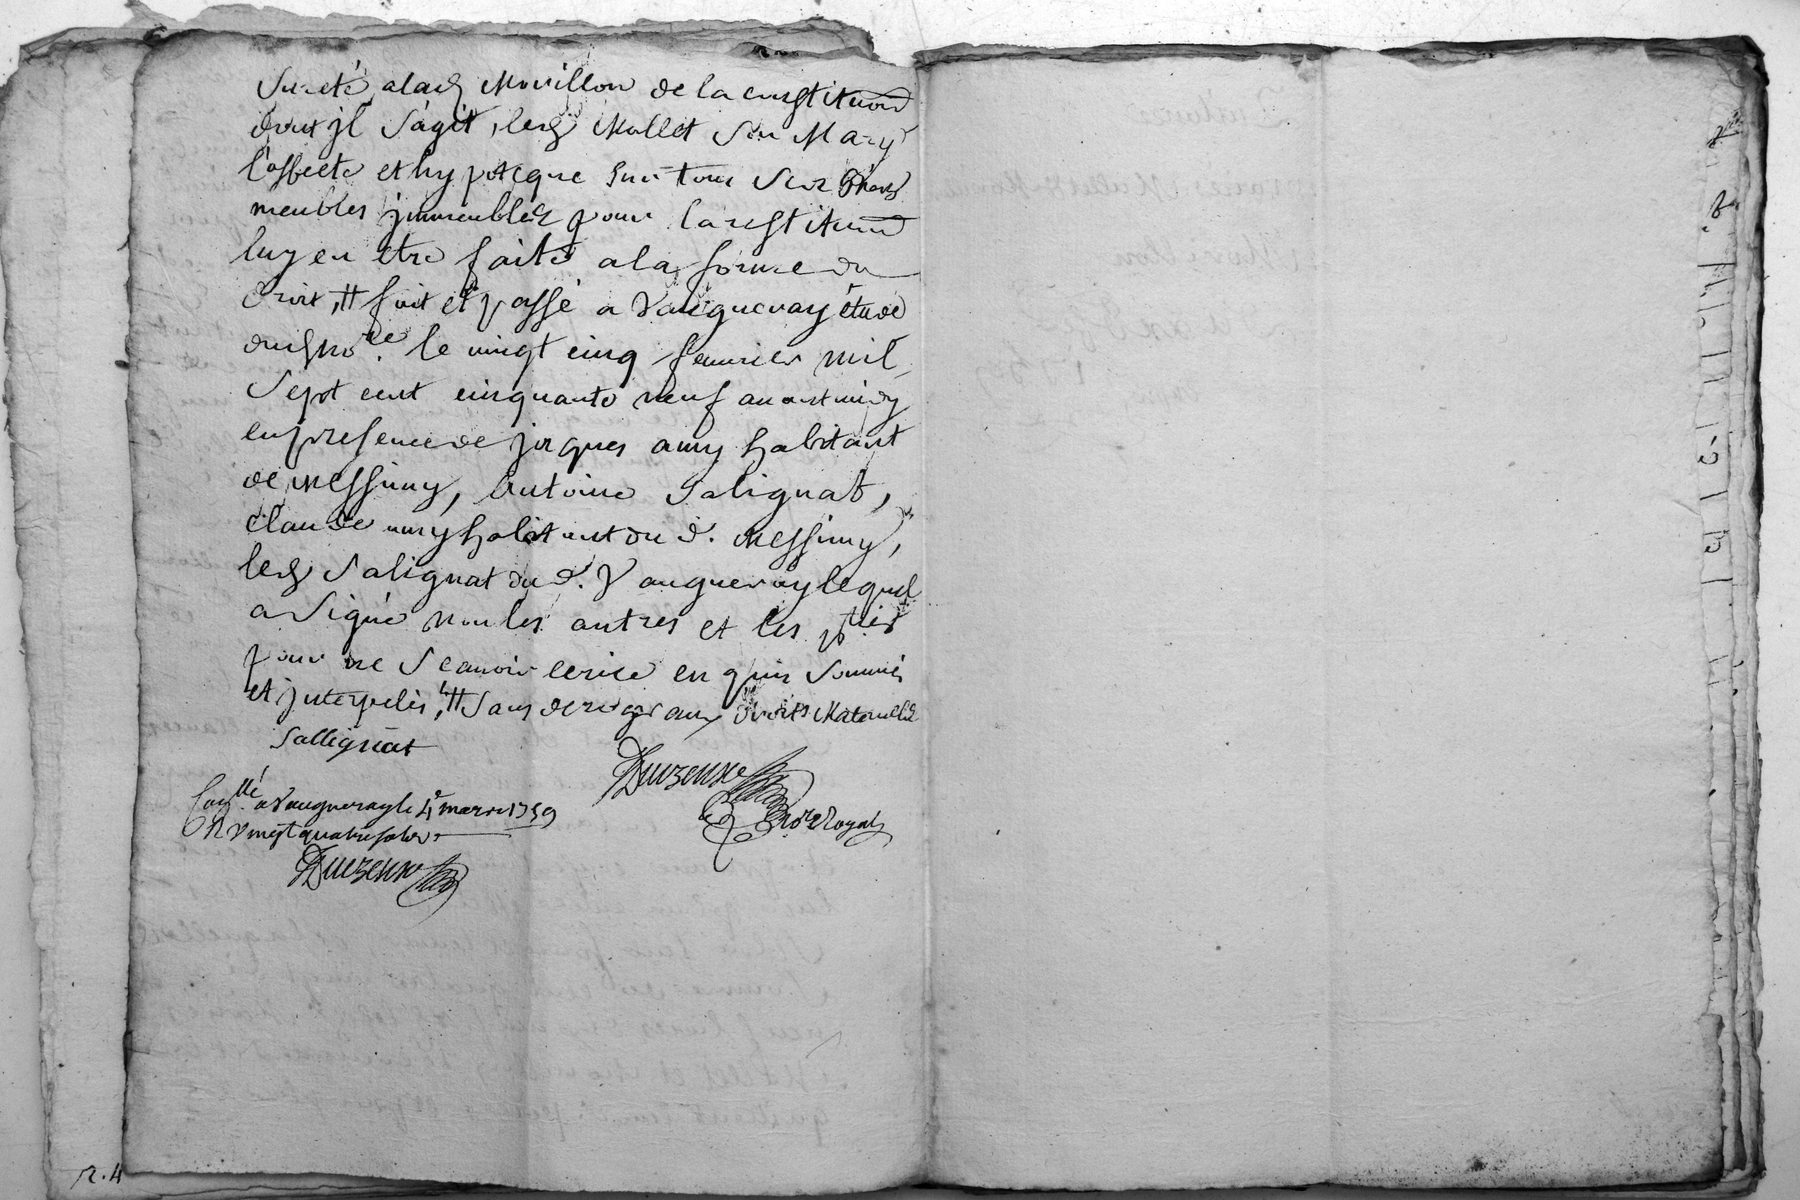 Sureté alad Mouillon de la constitution
dont jl s'agit, led Mallet Son Mary
l'affecte et hypoteque Sur tous Ses biens
meubles jmmeubles pour la restitution
luy en etre faite a la forme du
droit, # fait et passé a Vaugneray étude
dud no.re le vingt cinq feuurier mil
Sept cent cinquante neuf auant midy
en presence de jacques amy habitant
de Messimy, Antoine Salignat,
Claude amy habitant du d. Messimy,
led Salignat du d. Vaugneray lequel
a Signé non les autres et les pties
pour ne Scauoir ecrire en quis Sommés
et jnterpelés, # Sans deroger aux droits Maternelle
Sallignat
Duezenne
no.re Royal
Con.llé a Vaugneray le 4e mars 1759
R vingt quatre sols
Duezenne